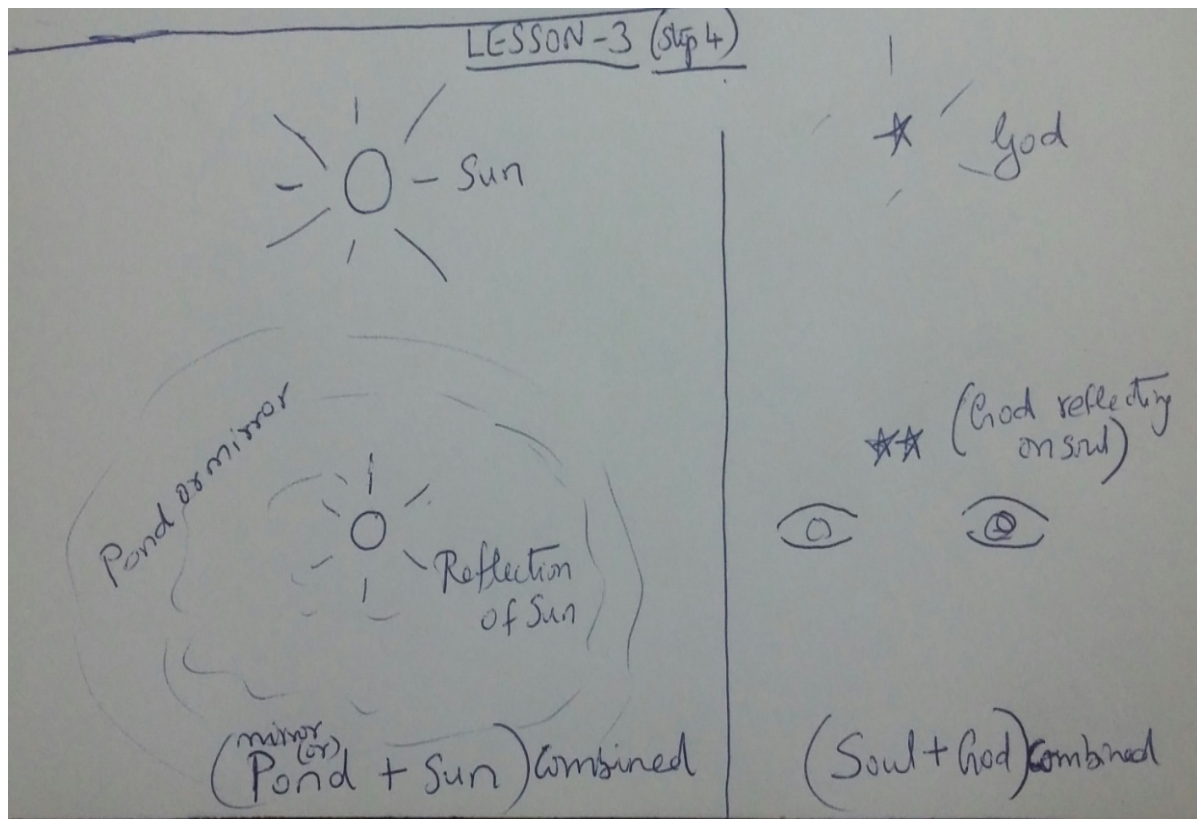 LESSON-3 (step 4)
Sun
Pond or mirror
Reflection
of Sun
mirror
(or)
(Pond + Sun) Combined
God
(God reflecting
on soul)
(Soul + God) Combined